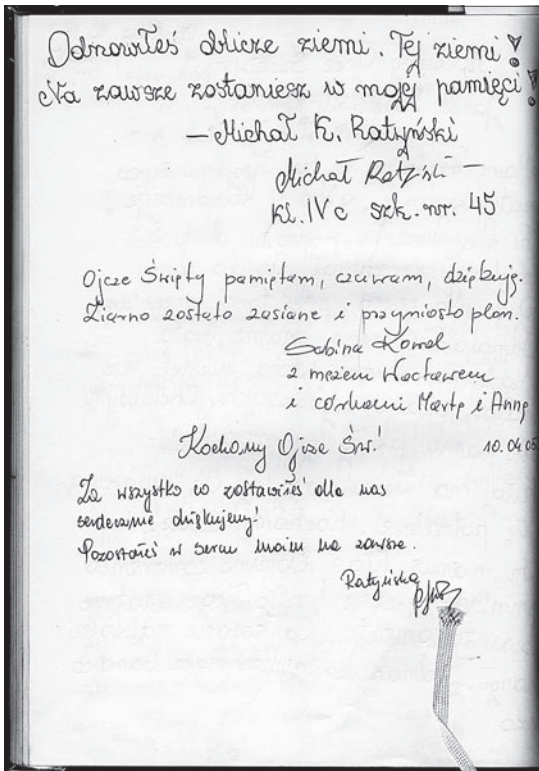 Odnowiłeś oblicze ziemi. Tej ziemi!
Na zawsze zostaniesz w mojej pamięci!
— Michał K. Ratyński
Michał
kl. IV c szk. nr. 45
Ojcze Święty pamiętam, czuwam, dziękuję.
Ziarno zostało zasiane i przyniosło plon.
Sabina Kowal
z mężem Wacławem
i córkami Martą i Anną
Kochany Ojcze Św.!
10.04.05
Za wszystko co zostawiłeś dla nas
serdecznie dziękujemy!
Pozostałeś w sercu moim na zawsze.
Ratyńska